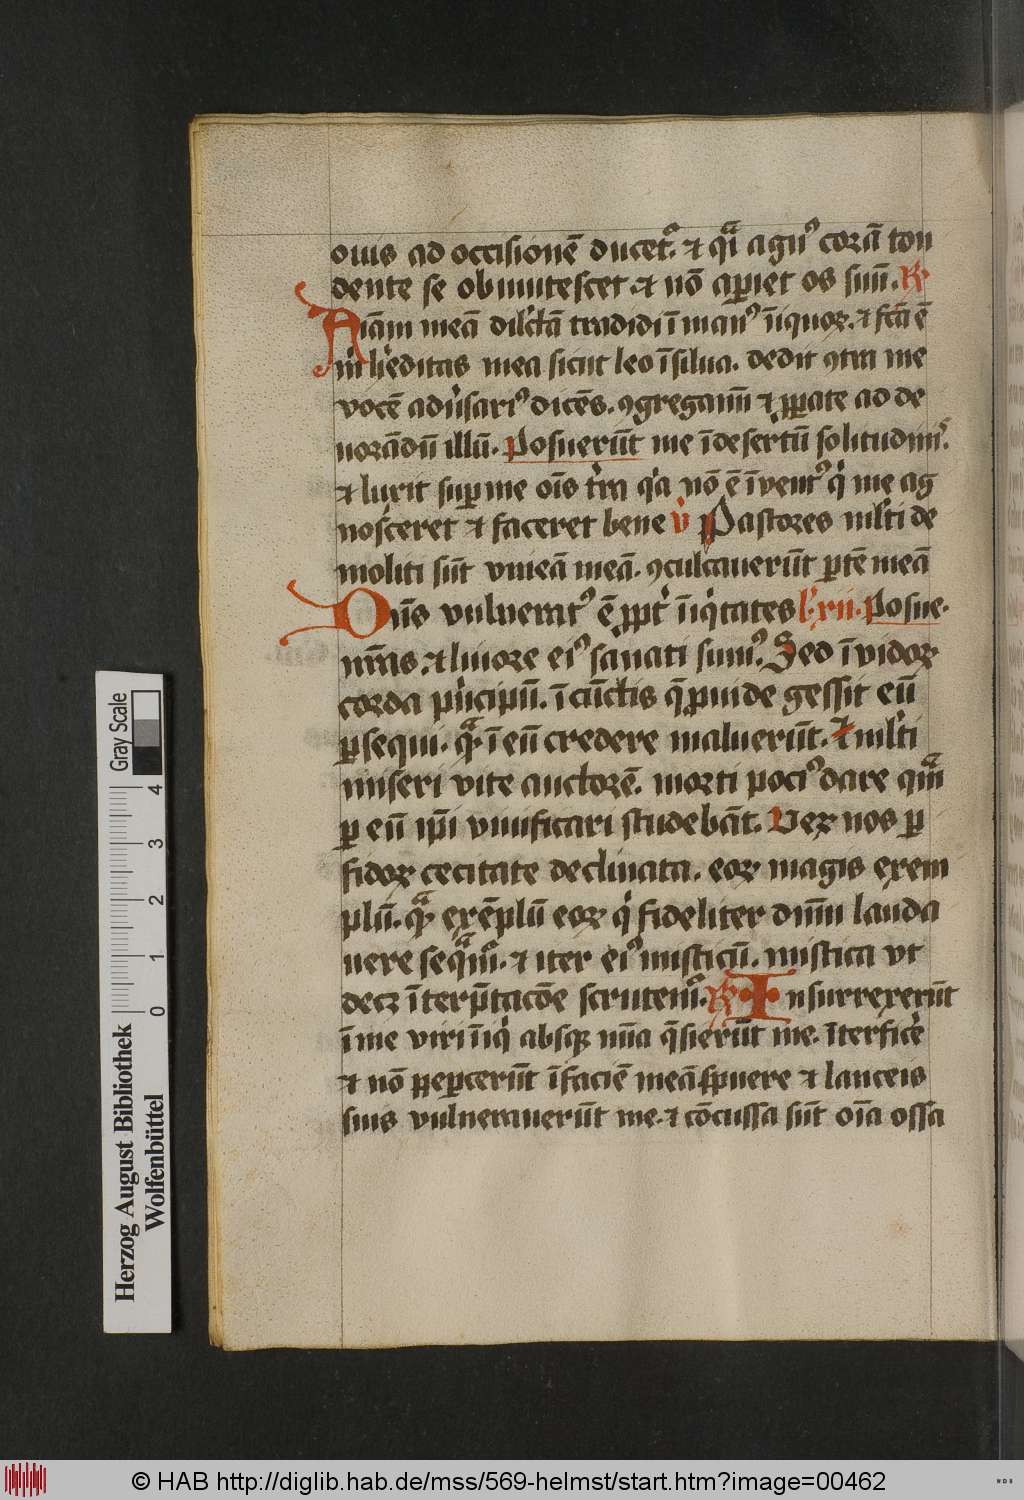 ouis ad occisionē ducet᷑. ⁊ qͣi agnꝰ corā ton
dente se obmutescet. ⁊ nō aꝑiet os suū. ℟
Aīam meā dilc̄tā tradidi ī manꝰ īiquoꝝ. ⁊ fcā ē
m̄ h̄editas mea sicut leo ī silua. dedit ꝯtra me
vocē adūsariꝰ dicēs. ꝯgregamī ⁊ ꝓꝑate ad de
uorādū illū. Posuerūt me ī desertū solitudinīs.
⁊ luxit suꝑ me oīs t̄ra qͥa nō ē īventꝰ qͥ me ag
nosceret ⁊ faceret bene v̄ Pastores mlti de
moliti sūt vineā meā. ꝯculcauerūt ꝑtē meā
Ouīs vulneratꝰ ē ꝓpt̄ īiqͥtates l. xii. Posue.
nr̄as. ⁊ liuore eiꝰ sanati sumꝰ. Sed īvidoꝝ
corda pͥncipū. ī cūctis q̄ ꝓuide gessit eū
ꝑsequi. qͣꝫ ī eū credere maluerūt. ⁊ mlti
miseri vite auctorē. morti pociꝰ dare qͣm
ꝑ eū ip̄i viuificari studebāt. Veꝝ nos ꝑ
fidoꝝ cecitate declinata. eoꝝ magis exem
plū. qͣꝫ exēplū eoꝝ qͥ fideliter dn̄m lauda
uere seqͣmͥ. ⁊ iter eiꝰ misticū. mistica vt
decꝫ īterp̄tacōe scrutemͥ. ℟ Insurrexerūt
ī me viri īiqͥ absqꝫ mīa q̄sierūt me. īterficē
⁊ nō peꝑcerūt ī faciē meā spuere ⁊ lanceis
suis vulnerauerūt me. ⁊ cōcussa sūt oīa ossa
Gray Scale
0 1 2 3 4
Herzog August Bibliothek
Wolfenbüttel
© HAB http://diglib.hab.de/mss/569-helmst/start.htm?image=00462